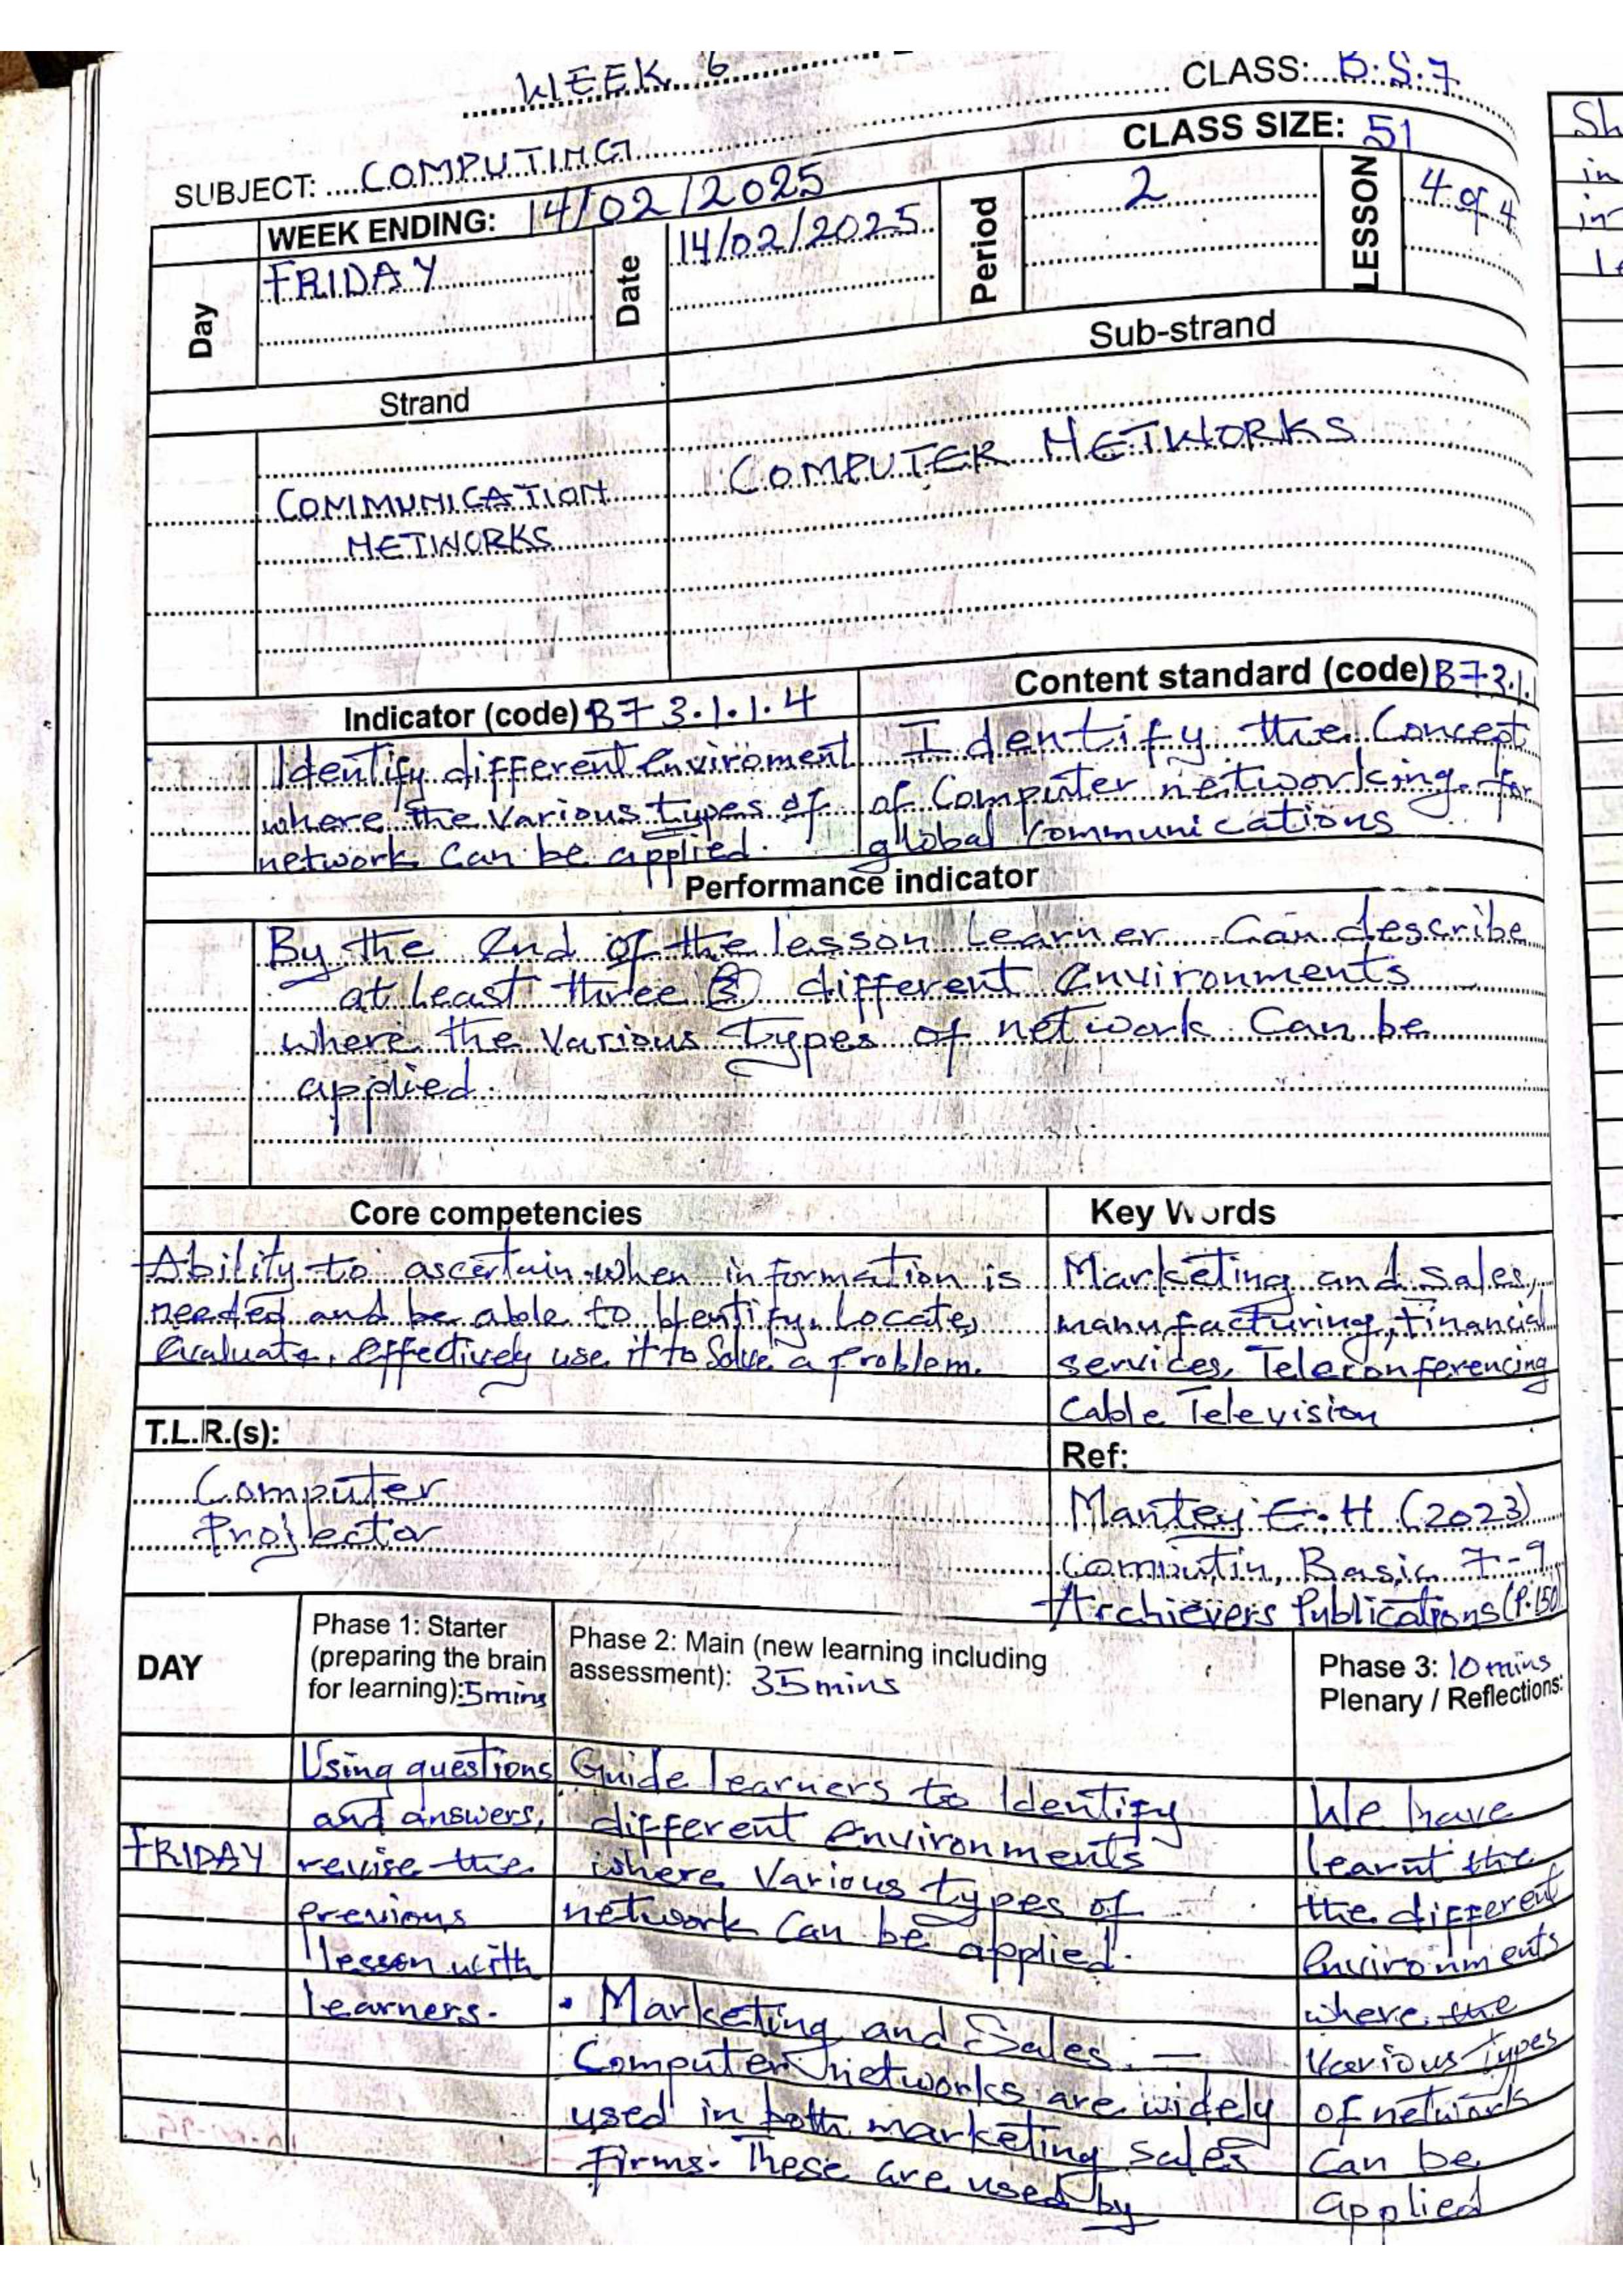 WEEK 6
CLASS: B.S.7
SUBJECT: COMPUTING
CLASS SIZE: 51
WEEK ENDING: 14/02/2025
Day FRIDAY Date 14/02/2025 Period 2 LESSON 4 of 4
Strand Sub-strand
COMMUNICATION
NETWORKS
COMPUTER NETWORKS
Indicator (code) B7 3.1.1.4
Identify different Enviroment
where the Various types of
network Can be applied.
Content standard (code) B7 3.1.
Identify the Concept
of Computer networking for
global Communications
Performance indicator
By the End of the lesson Learner Can describe
at least three (3) different Environments
where the Various types of network Can be
applied.
Core competencies
Ability to ascertain when information is
needed and be able to Identify, Locate,
Evaluate, Effectively use it to Solve a Problem.
Key Words
Marketing and Sales,
manufacturing, Financial
services, Teleconferencing
Cable Television
T.L.R.(s):
Computer
Projector
Ref:
Mantey E.H (2023)
Computin, Basic 7-9
Archievers Publications (P.150)
DAY
Phase 1: Starter
(preparing the brain
for learning): 5mins
Phase 2: Main (new learning including
assessment): 35mins
Phase 3: 10mins
Plenary / Reflections:
FRIDAY
Using questions
and answers,
revise the
Previous
lesson with
learners.
Guide learners to Identify
different Environments
where Various types of
network Can be applied.
• Marketing and Sales. —
Computer networks are widely
used in both marketing sales
Firms. These are used by
We have
learnt the
the different
Environments
where the
Various Types
of network
Can be
applied
Sh
in
in